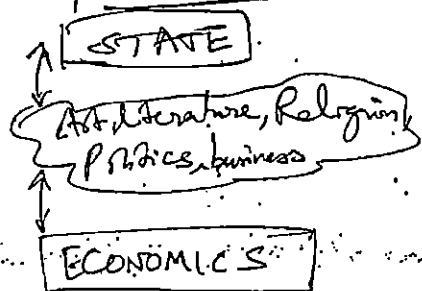 STATE
Art, literature, Religion,
Politics, business
ECONOMICS